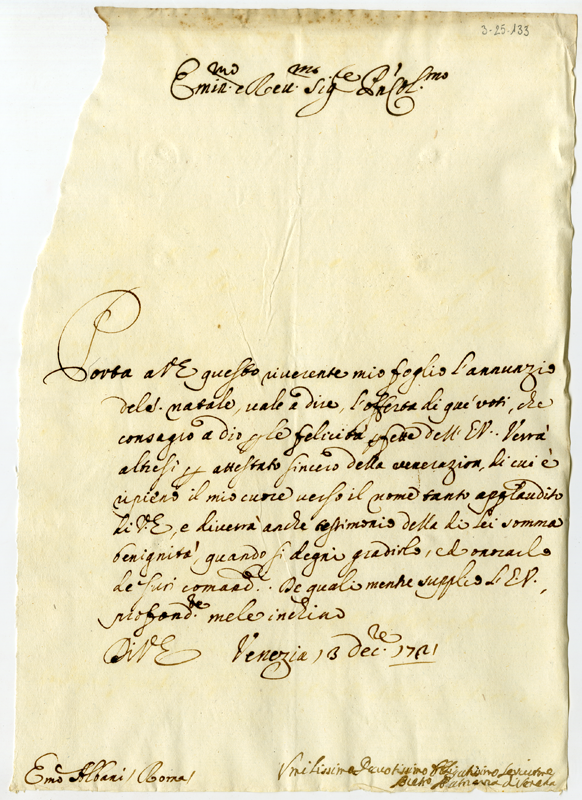 3-25-133
Emin.mo e Reu.mo Sig.re P'ron Col.mo
Porta a V E questo riuerente mio foglio l'annunzio
del S. natale, uale a dire, l'offerta di que' uoti, che
consagro a dio p le felicità dell'E V.. Verrà
altresi p attestato sincero della venerazion, di cui è
ripieno il mio cuore verso il nome tanto applaudito
di V.E, e diuerrà anche testimonio della di Lei somma
benignità, quando si degni gradirlo, ed onorarlo
de suoi comand.. De quali mentre supplico L'E V.,
profond.te mele inchino
Di V E Venezia 13 dec.re 1721
Emo Albani (Roma)
Vmilissimo Deuotissimo Obligatissimo Seruitore
Pietro Patriarca di Venezia